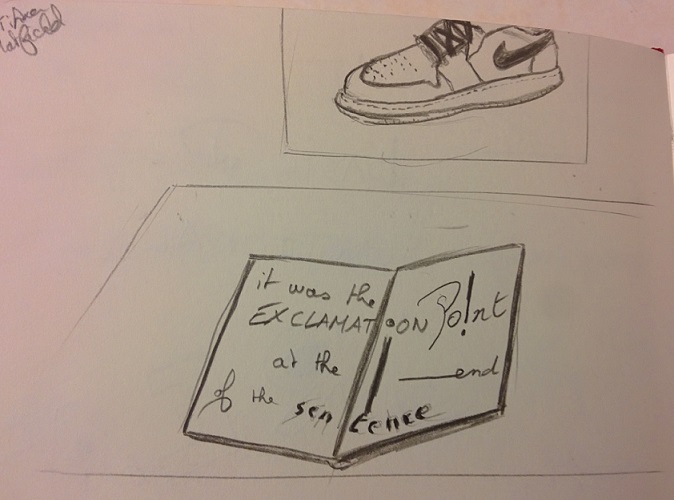 it was the
EXCLAMATION Po!nt
at the end
of the sentence